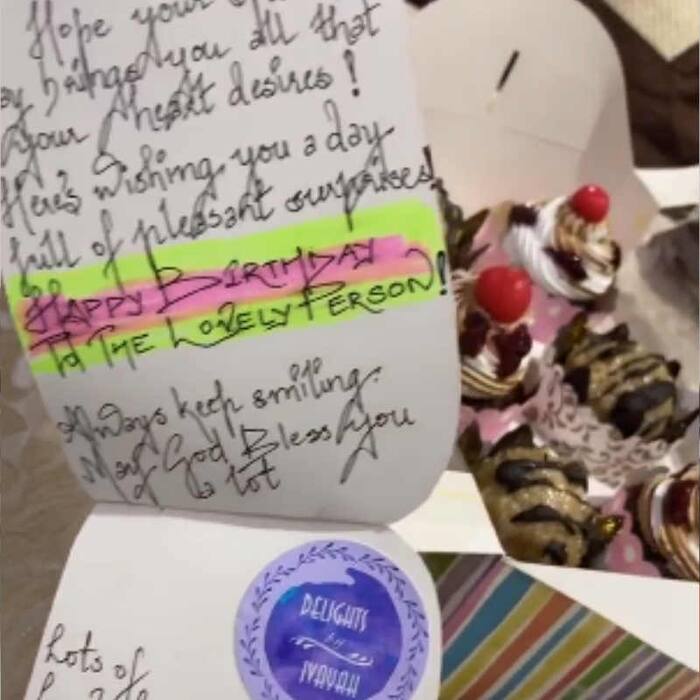 Hope your
day brings you all that
your heart desires!
Here's wishing you a day
full of pleasant surprises!
HAPPY BIRTHDAY
TO THE LOVELY PERSON!
Always keep smiling.
May God Bless You
a lot
Lots of
DELIGHTS
by